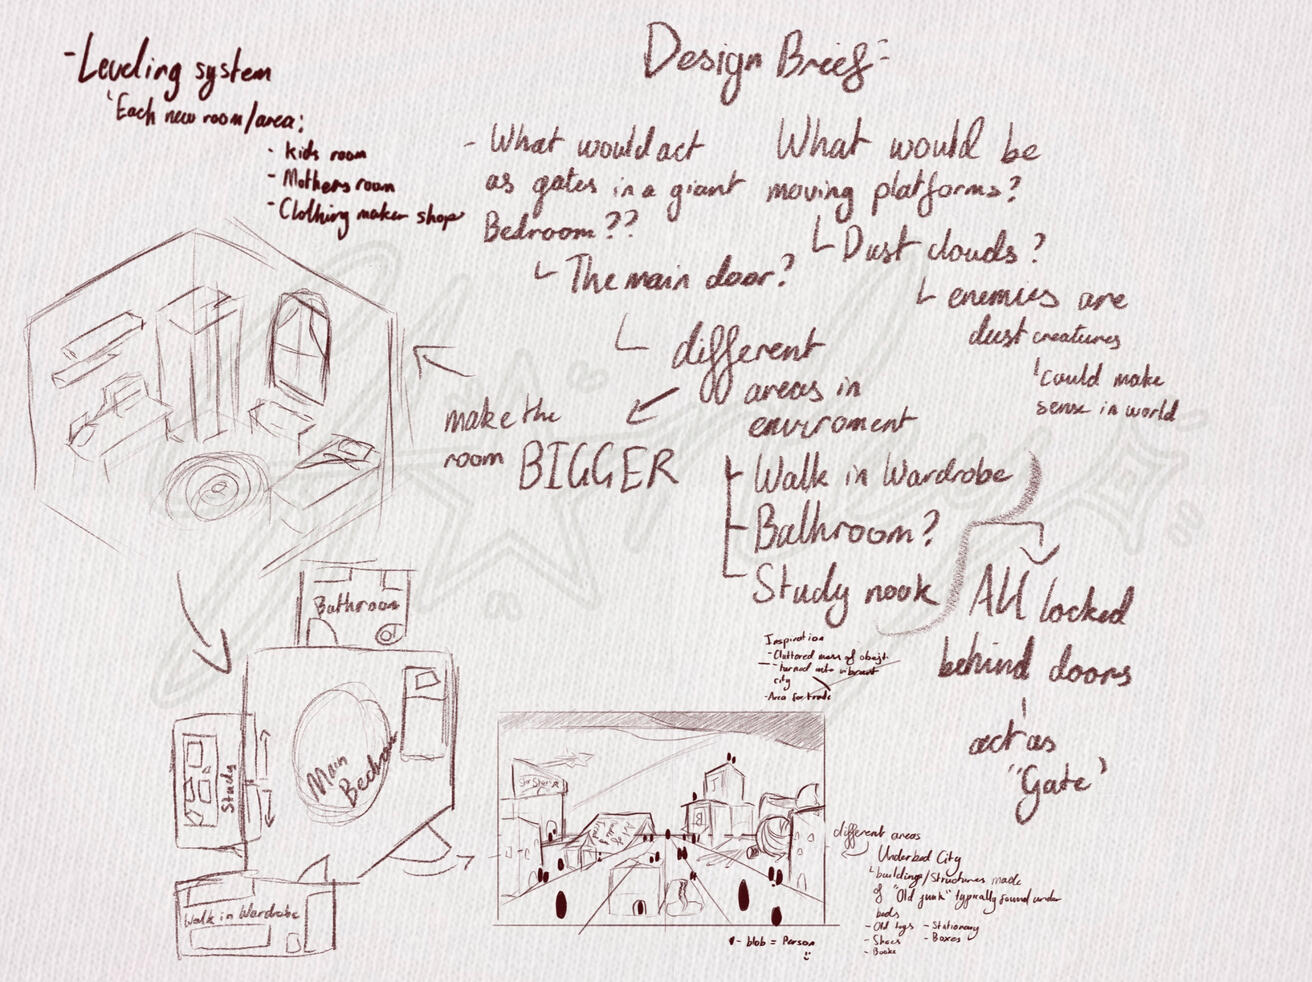 Design Brief:-
- Leveling system
Each new room/area:
- Kids room
- Mothers room
- Clothing maker shop
- What would act
as gates in a giant
Bedroom??
The main door?
different
areas in
enviroment
Walk in Wardrobe
Bathroom?
Study nook
All locked
behind doors
act as
"Gate"
What would be
moving platforms?
Dust clouds?
enemies are
dust creatures
could make
sense in world
make the
room BIGGER
Bathroom
Main
Bedroom
Study
Walk in Wardrobe
Inspiration
- Cluttered mess of objects
- turned into vibrant
city
- Area for trade
- blob = Person
different areas
Underbed City
buildings/Structures made
of "Old junk" typically found under
beds
- Old toys - Stationary
- Shoes - Boxes
- Books